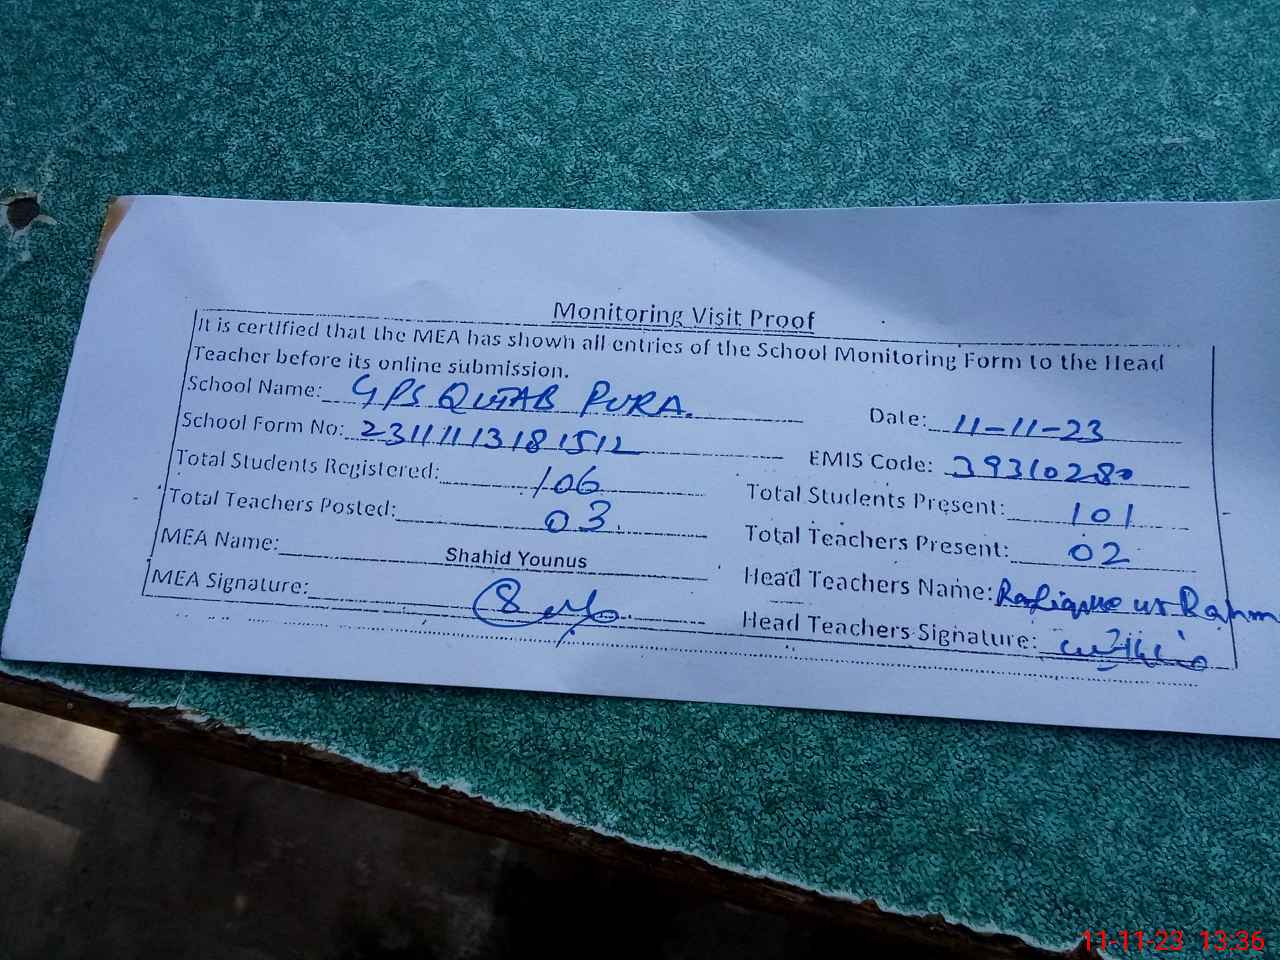 Monitoring Visit Proof
It is certified that the MEA has shown all entries of the School Monitoring Form to the Head
Teacher before its online submission.
School Name: GPS QUTAB PURA. Date: 11-11-23
School Form No: 23111113181512 EMIS Code: 39310280
Total Students Registered: 106 Total Students Present: 101
Total Teachers Posted: 03. Total Teachers Present: 02
MEA Name: Shahid Younus Head Teachers Name: Rafique ur Rahm
MEA Signature: Head Teachers Signature:
11-11-23 13:36